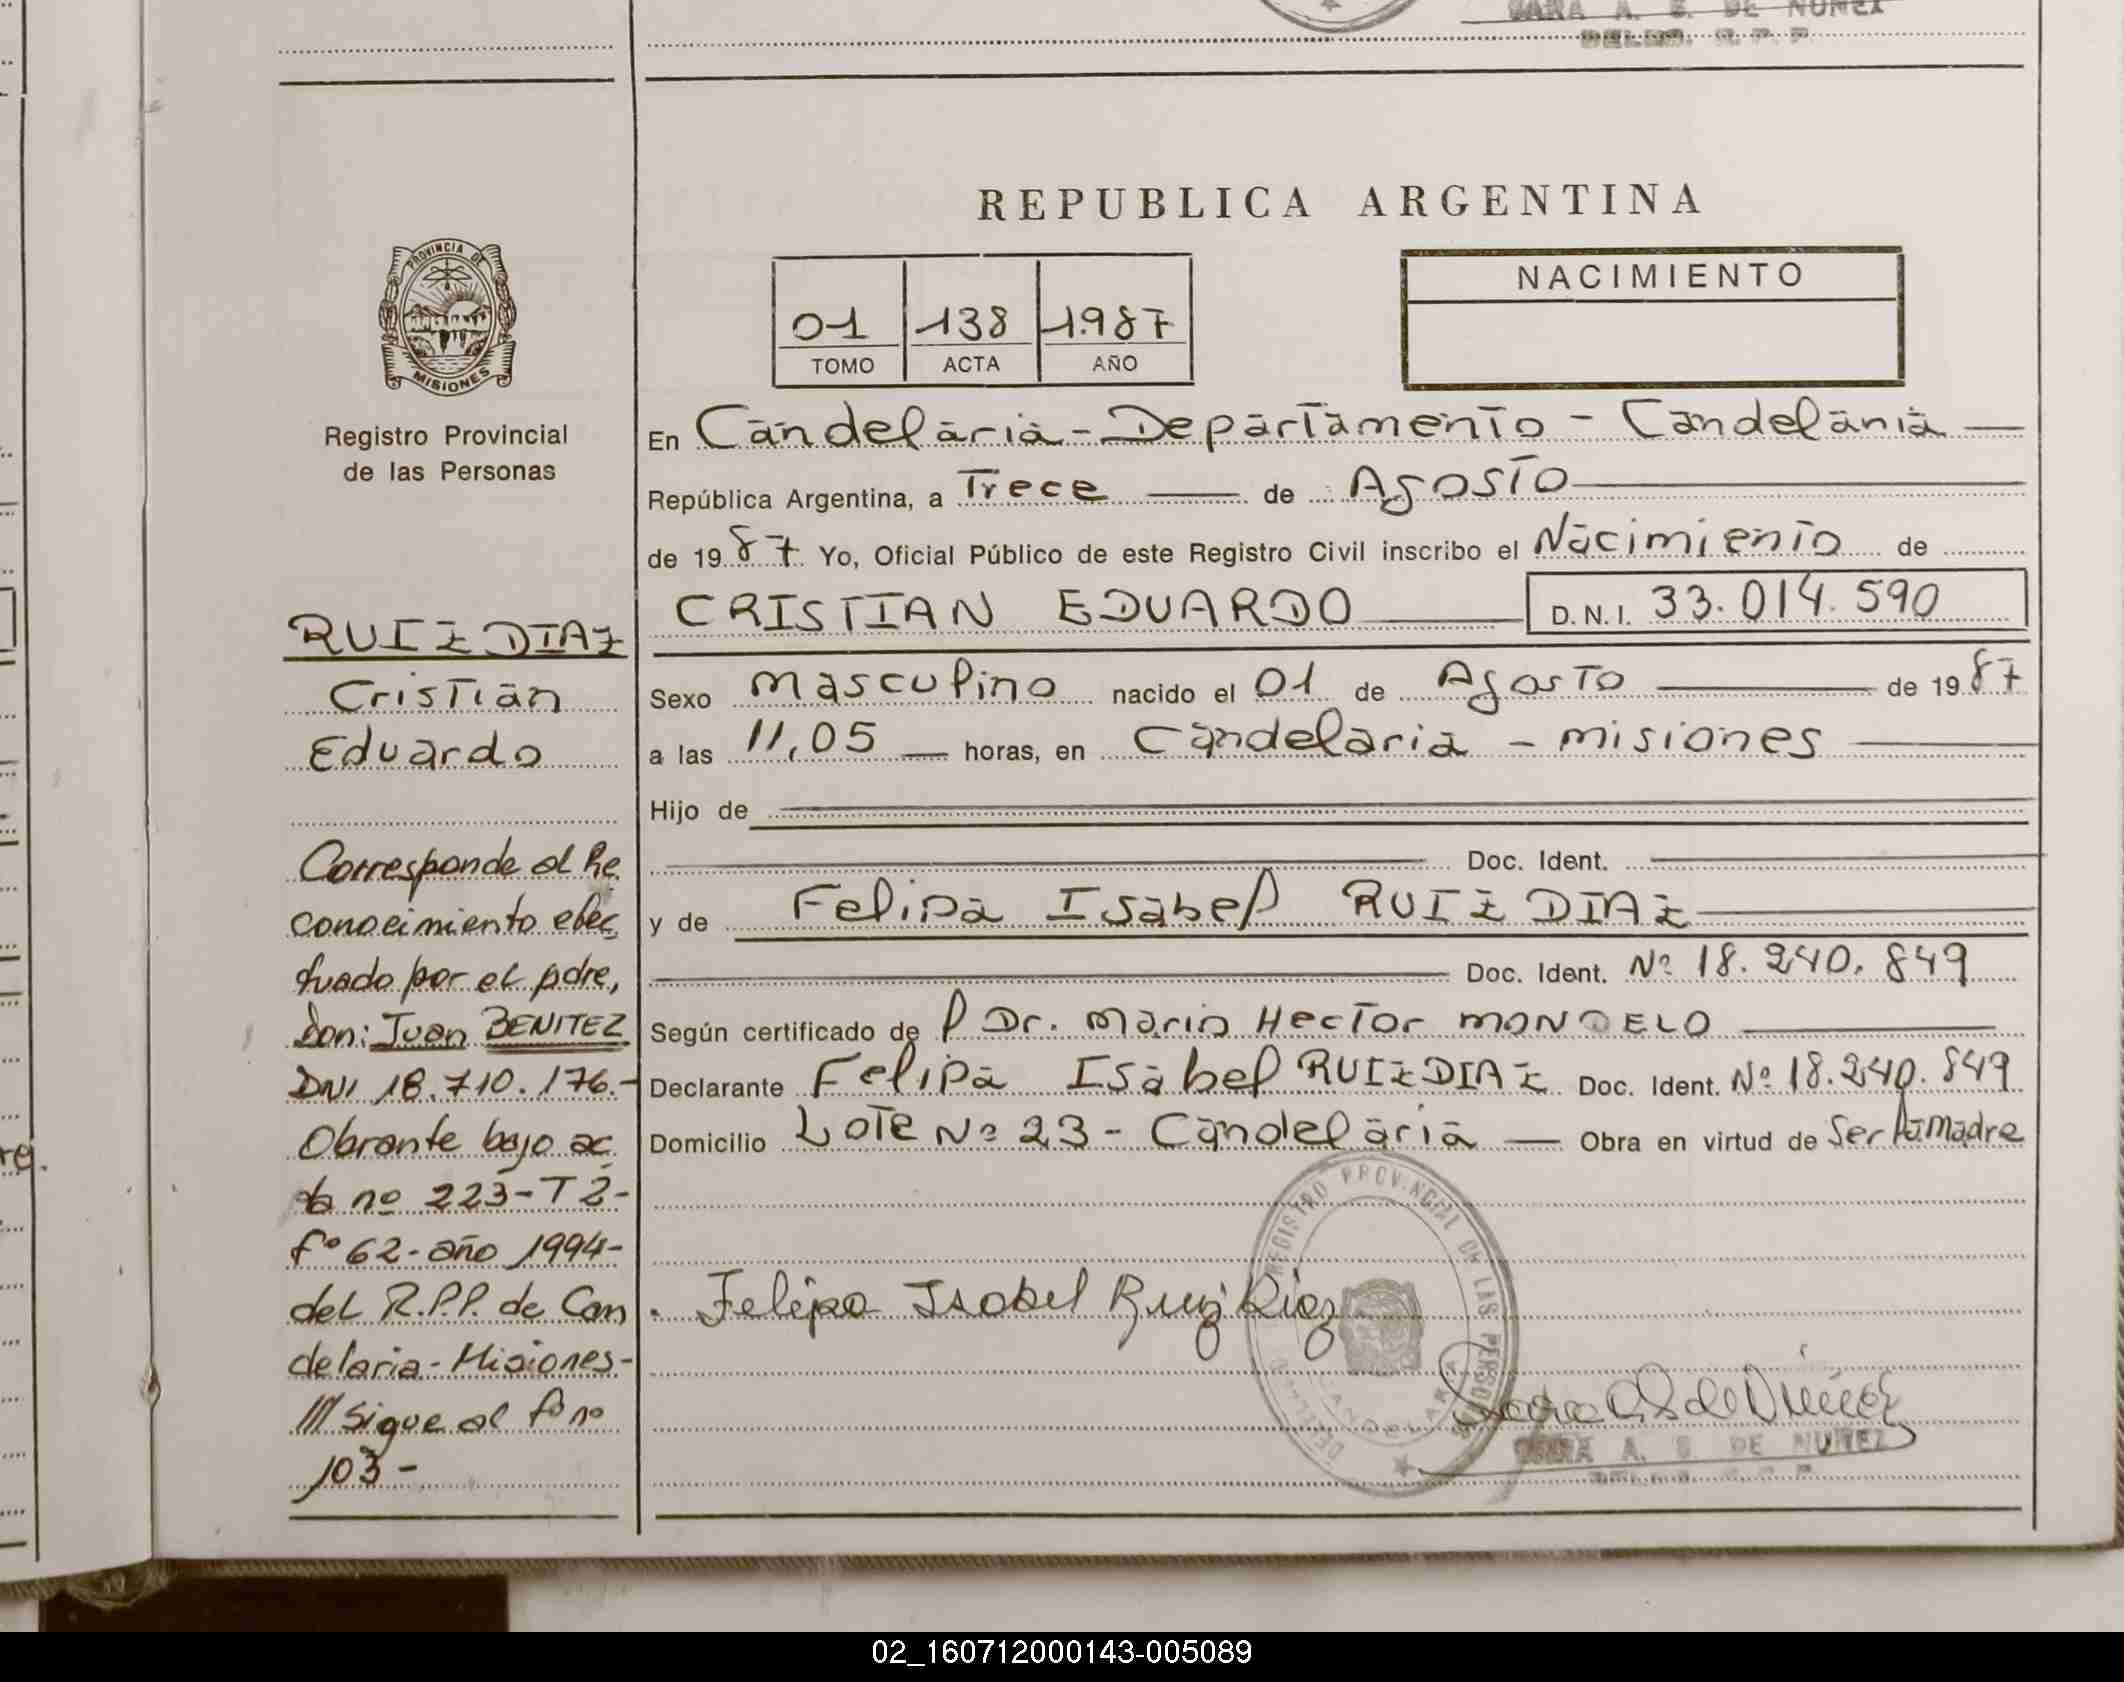 SARA A. S. DE NUÑEZ
DELEG. R. P. P.
REPUBLICA ARGENTINA
PROVINCIA DE
MISIONES
Registro Provincial
de las Personas
01 138 1.987
TOMO ACTA AÑO
NACIMIENTO
En Candelaria - Departamento - Candelaria
República Argentina, a Trece de Agosto
de 1987 Yo, Oficial Público de este Registro Civil inscribo el Nacimiento de
CRISTIAN EDUARDO D.N.I. 33.014.590
Sexo masculino nacido el 01 de Agosto de 1987
a las 11,05 horas, en Candelaria - misiones
Hijo de
Doc. Ident.
y de Felipa Isabel RUIZ DIAZ
Doc. Ident. Nº 18.240.849
Según certificado de l Dr. Mario Hector MONDELO
Declarante Felipa Isabel RUIZ DIAZ Doc. Ident. Nº 18.240.849
Domicilio Lote Nº 23 - Candelaria Obra en virtud de Ser la madre
Felipa Isabel Ruiz Diaz
REGISTRO PROVINCIAL DE LAS PERSONAS
CANDELARIA
SARA A. S. DE NUÑEZ
DELEG. R. P. P.
RUIZ DIAZ
Cristian
Eduardo
Corresponde al Re
conocimiento efec
tuado por el pdre,
Don: Juan BENITEZ
DNI 18.710.176.-
Obrante bajo ac
ta nº 223-T2-
fº 62- año 1994-
del R.P.P. de Can
delaria - Misiones-
/// Sigue al fº nº
103-
02_160712000143-005089